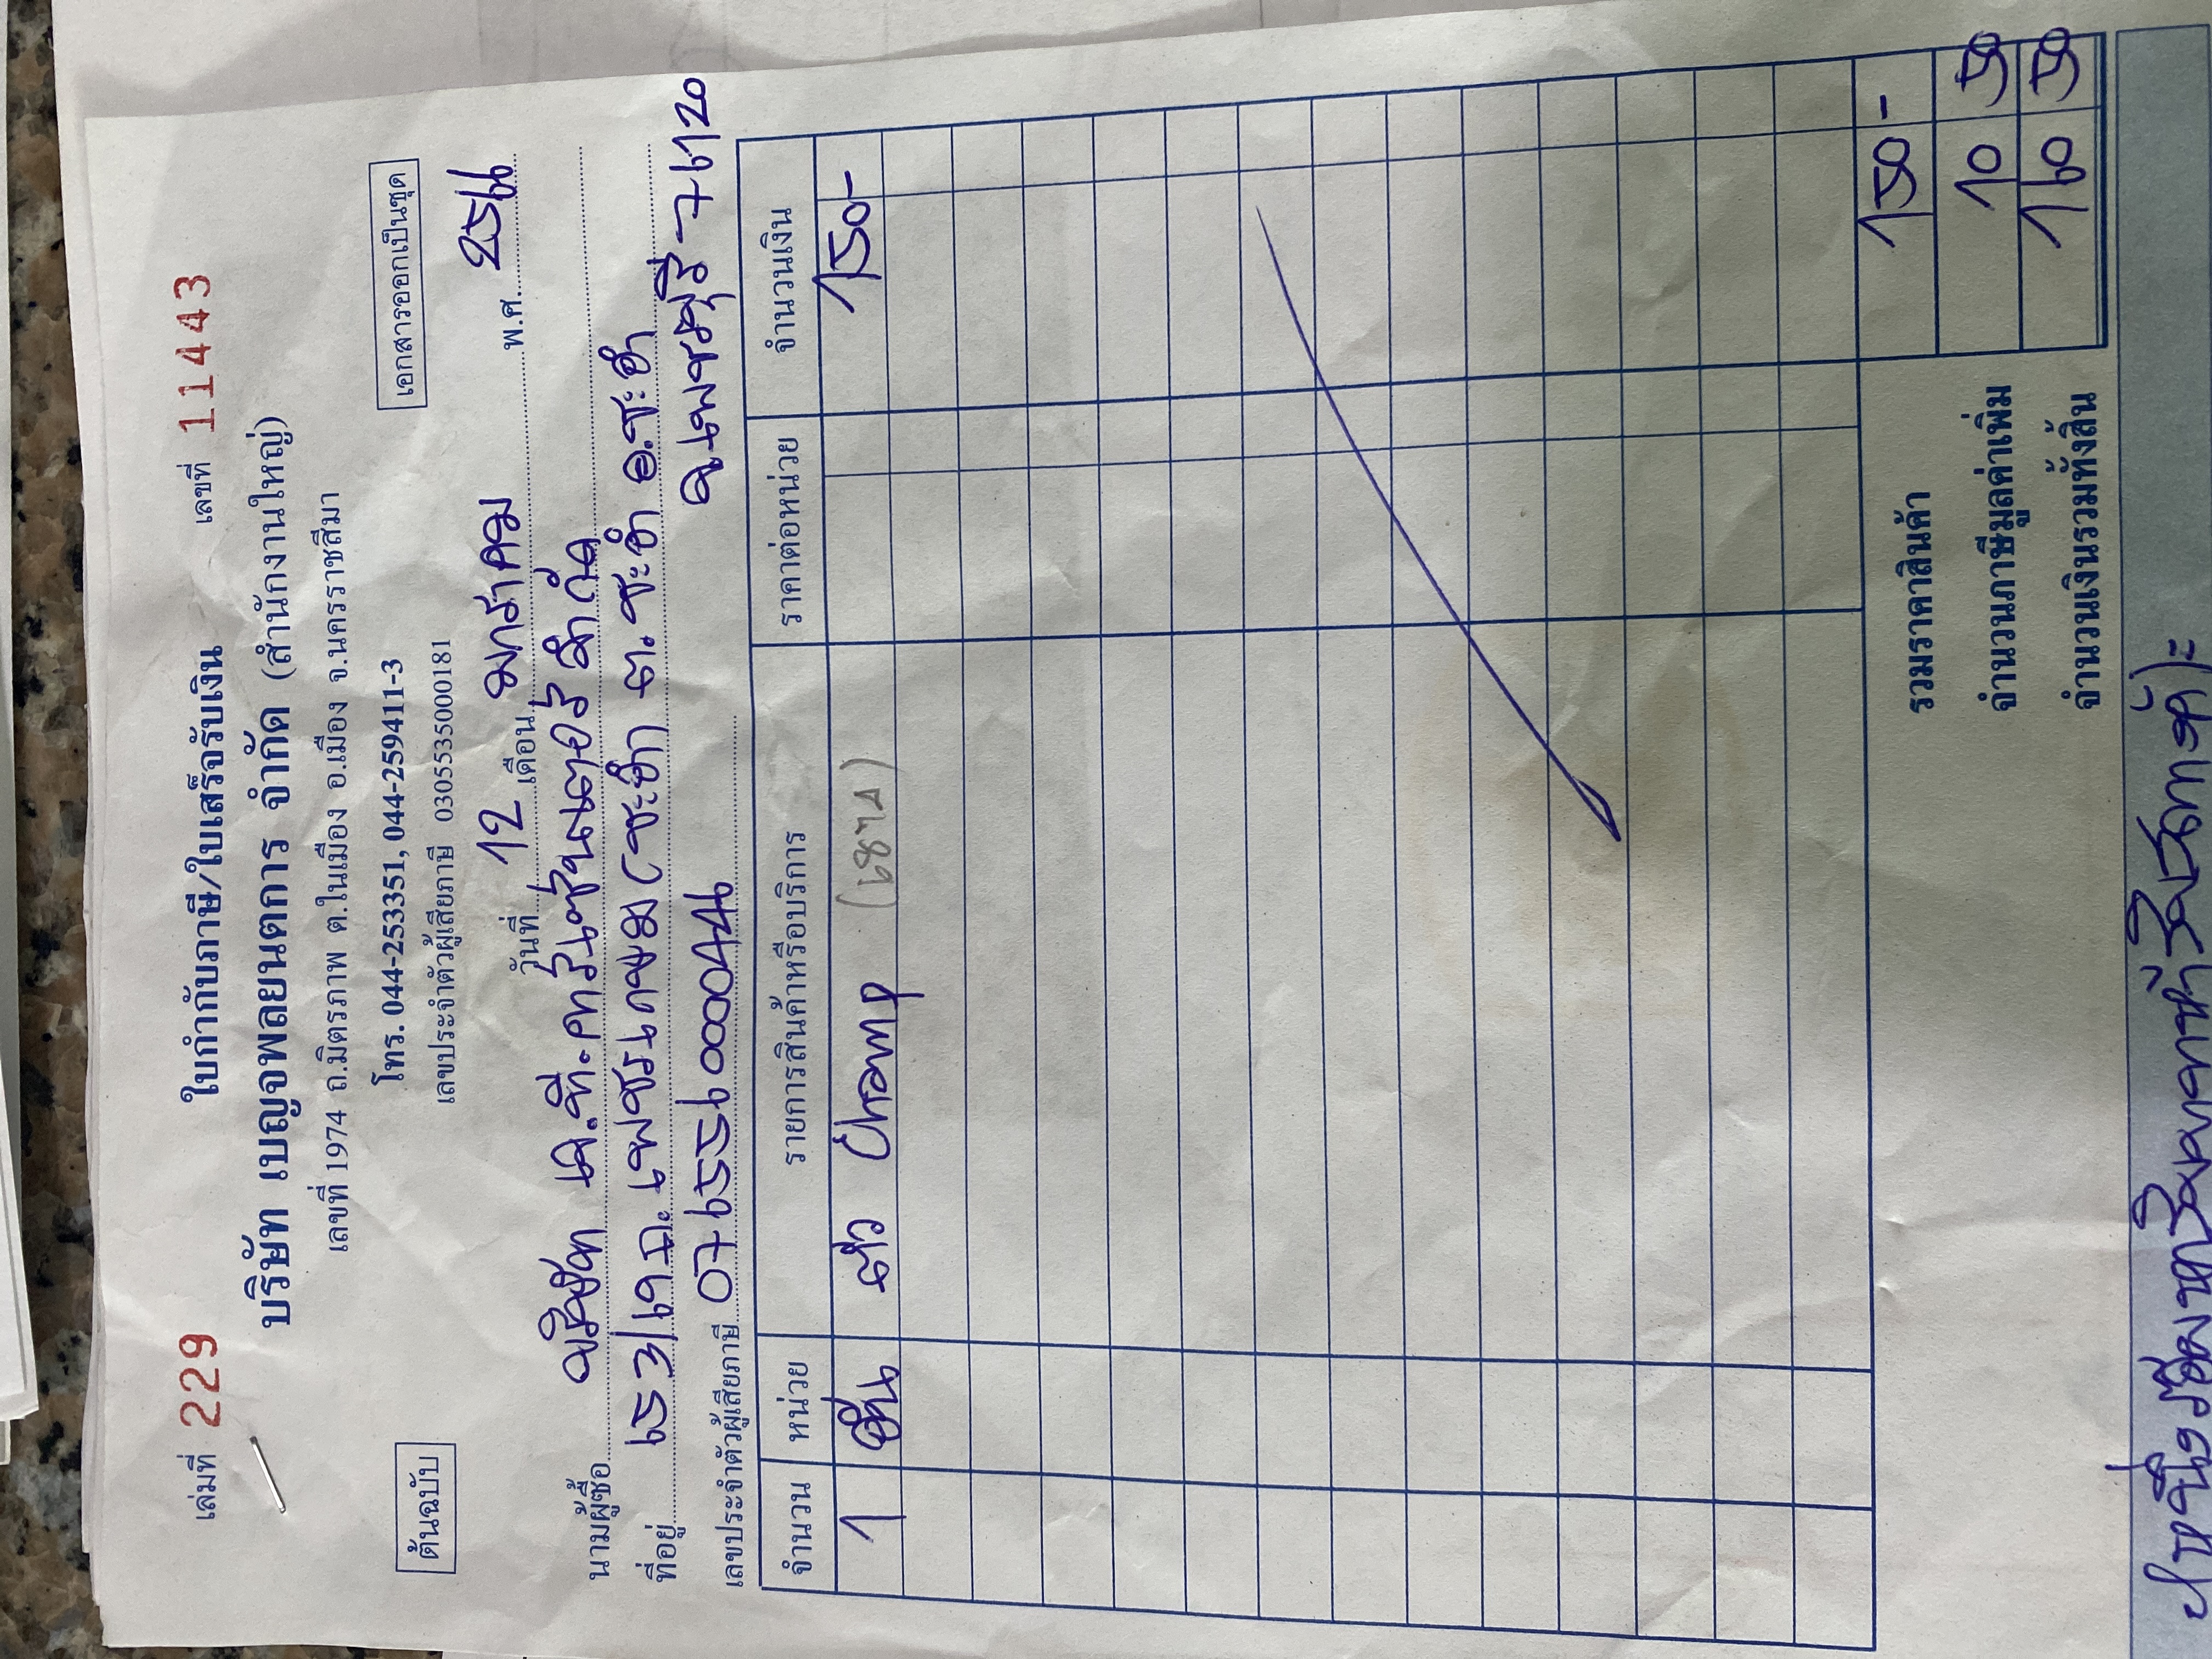 เล่มที่ 229 ใบกำกับภาษี/ใบเสร็จรับเงิน เลขที่ 11443
บริษัท เบญจพลยนตการ จำกัด (สำนักงานใหญ่)
เลขที่ 1974 ถ.มิตรภาพ ต.ในเมือง อ.เมือง จ.นครราชสีมา
โทร. 044-253351, 044-259411-3
ต้นฉบับ เลขประจำตัวผู้เสียภาษี 0305535000181 เอกสารออกเป็นชุด
วันที่ 12 เดือน มกราคม พ.ศ. 2566
นามผู้ซื้อ บริษัท เค.ที. จำกัด
ที่อยู่ 653/19 ถ. เพชรเกษม (ชะอำ) ต.ชะอำ อ.ชะอำ
เลขประจำตัวผู้เสียภาษี 0765560000446 จ.เพชรบุรี 76120
จำนวน หน่วย รายการสินค้าหรือบริการ ราคาต่อหน่วย จำนวนเงิน
1 อัน ตัว Champ 150-
รวมราคาสินค้า 150-
จำนวนภาษีมูลค่าเพิ่ม 10 50
จำนวนเงินรวมทั้งสิ้น 160 50
(หนึ่งร้อยหกสิบบาทห้าสิบสตางค์)